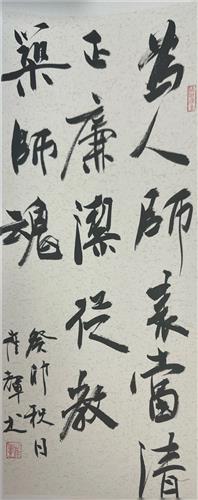 為人師表當清
正廉潔從教
築師魂
癸卯秋月
崔輝书